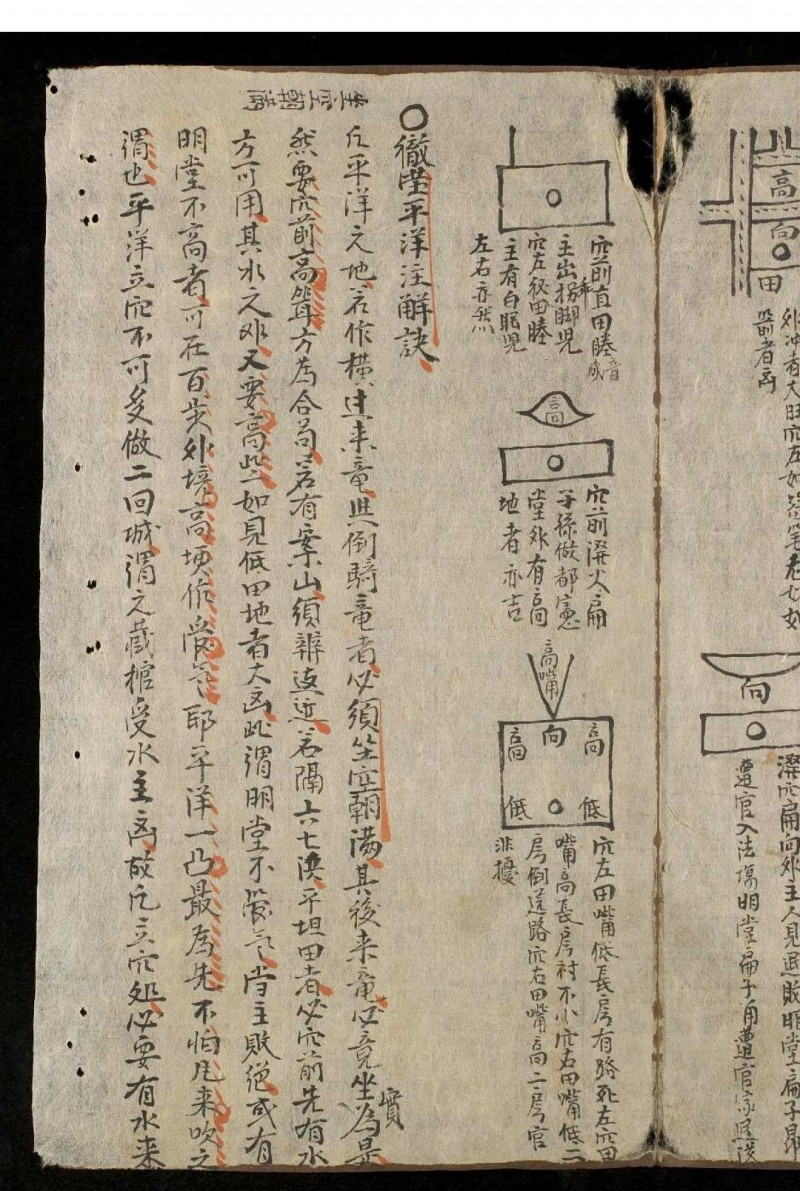 高
向
田
外冲者大旺穴左如答筆者也如
箭者凶
向
深穴扁向外主人見退敗明堂扁子昂
遭官入法場明堂扁子角遭官家
穴前直田睦
音成
主出拐脚兒
穴左秋田睦
主有白眼兒
左右亦然
高
穴前深火扁
子孫做都憲
堂外有高
地者亦吉
高嘴
高 向 高
低 低
穴左田嘴低長房有路死左穴田
嘴高長房衬不小穴右田嘴低二
房倒送路穴右田嘴高二房官
非擾
○徹瑩平洋注解訣
凡平洋之地若作橫过来竜與倒騎竜者必須坐空朝满其後来竜必竟坐為是
實
然要穴前高聳方為合局若有案山須辨远近若隔六七湙平坦田者必穴前先有水
方可用其水之外又要高些如見低田地者大凶此謂明堂不聚氣当主敗絕或有
明堂不高者可在百步外境高埂作聚氣耶平洋一凸最為先不怕凡来吹之
謂也平洋立穴不可多做二回城謂之藏棺受水主凶故凡立穴処必要有水来
坐空朝满